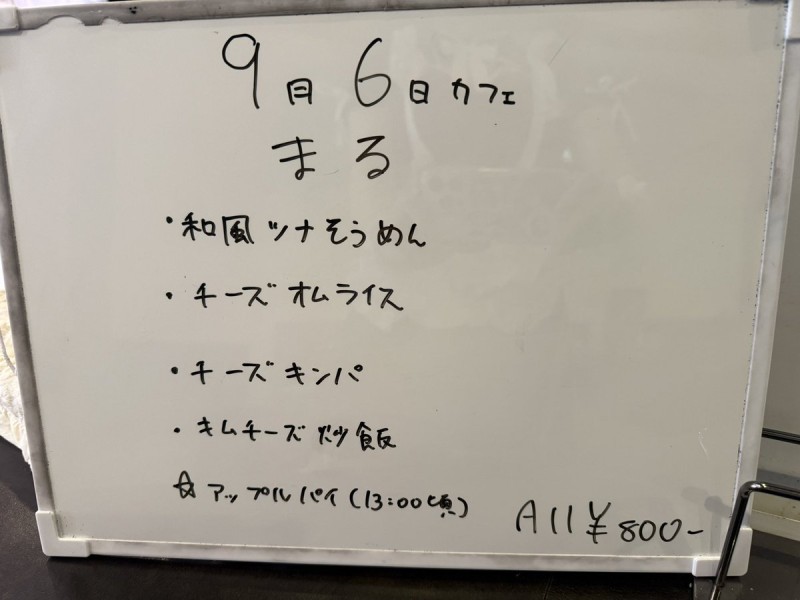 9月6日カフェ
まる
・和風ツナそうめん
・チーズオムライス
・チーズキンパ
・キムチーズ炒飯
☆アップルパイ(13:00頃)
All ¥800-